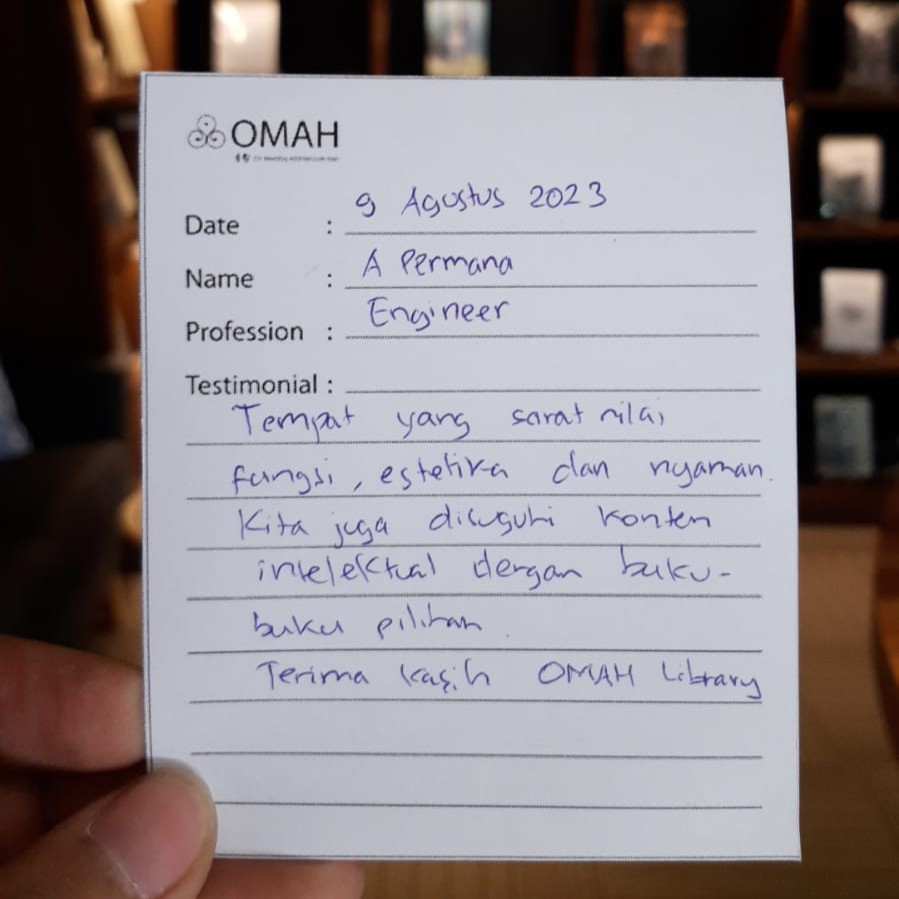 OMAH
Date : 9 Agustus 2023
Name : A Permana
Profession : Engineer
Testimonial :
Tempat yang sarat nilai
fungsi, estetika dan nyaman.
Kita juga disuguhi konten
intelektual dengan buku-
buku pilihan.
Terima kasih OMAH Library